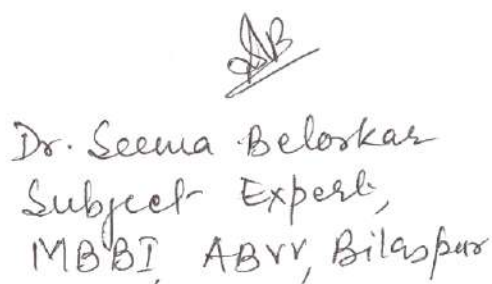 Dr. Seema Belorkar
Subject Expert,
MBBI, ABVV, Bilaspur